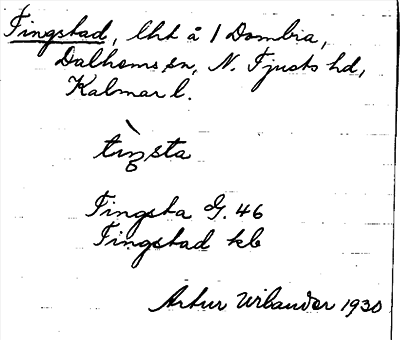 Tingstad, lht å 1 Dombra,
Dalhems sn, N. Tjusts hd,
Kalmar l.
tìŋsta
Tingsta G. 46
Tingstad kb
Artur Urbander 1930